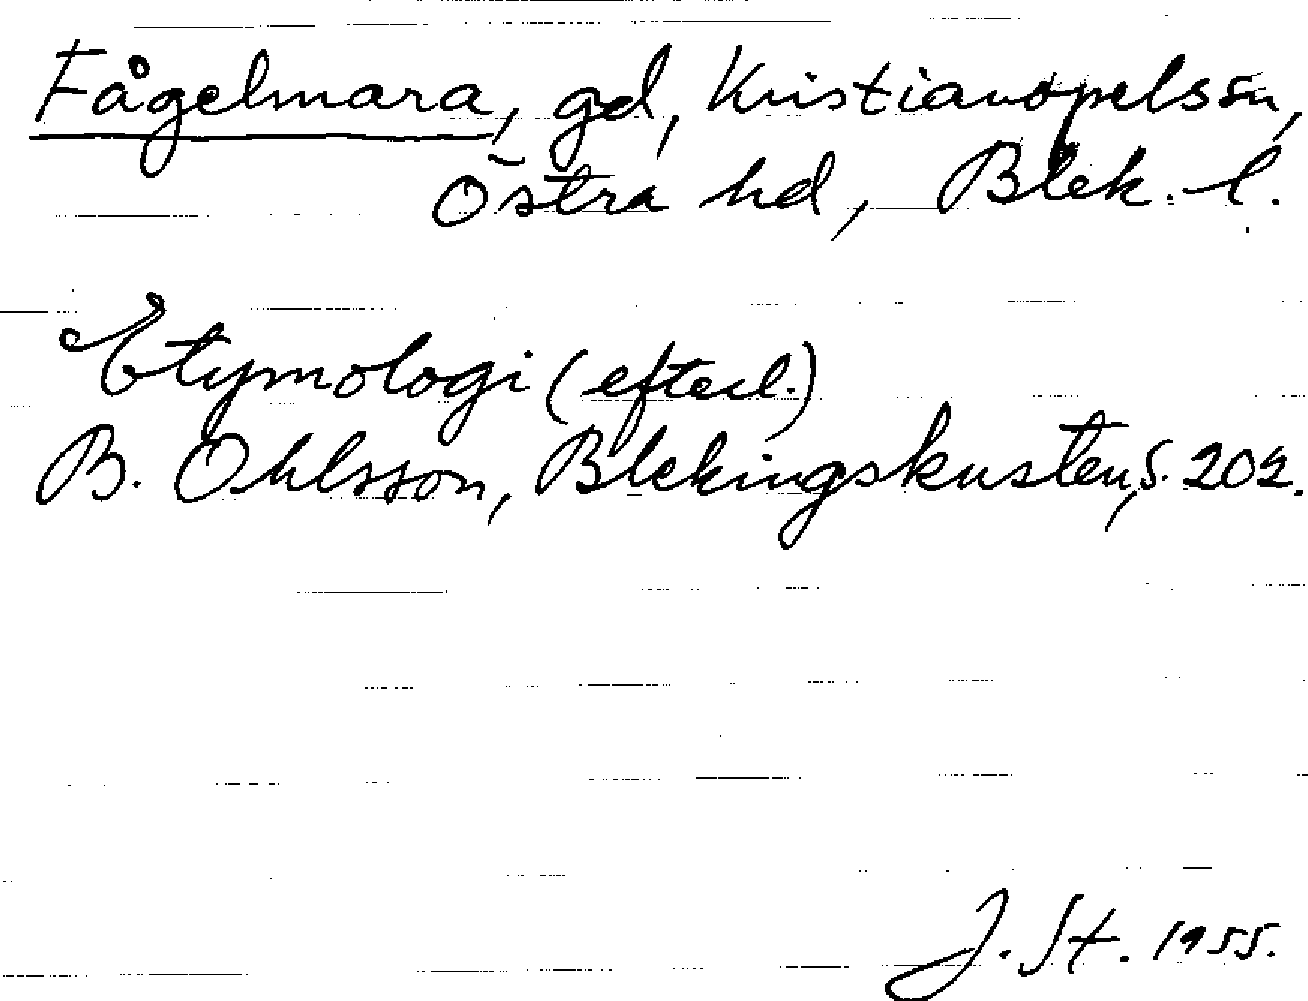 Fågelmara, gd, Kristianopels sn,
Östra hd, Blek. l.
Etymologi (efterl.)
B. Ohlsson, Blekingskusten, s. 202.
J. St. 1955.